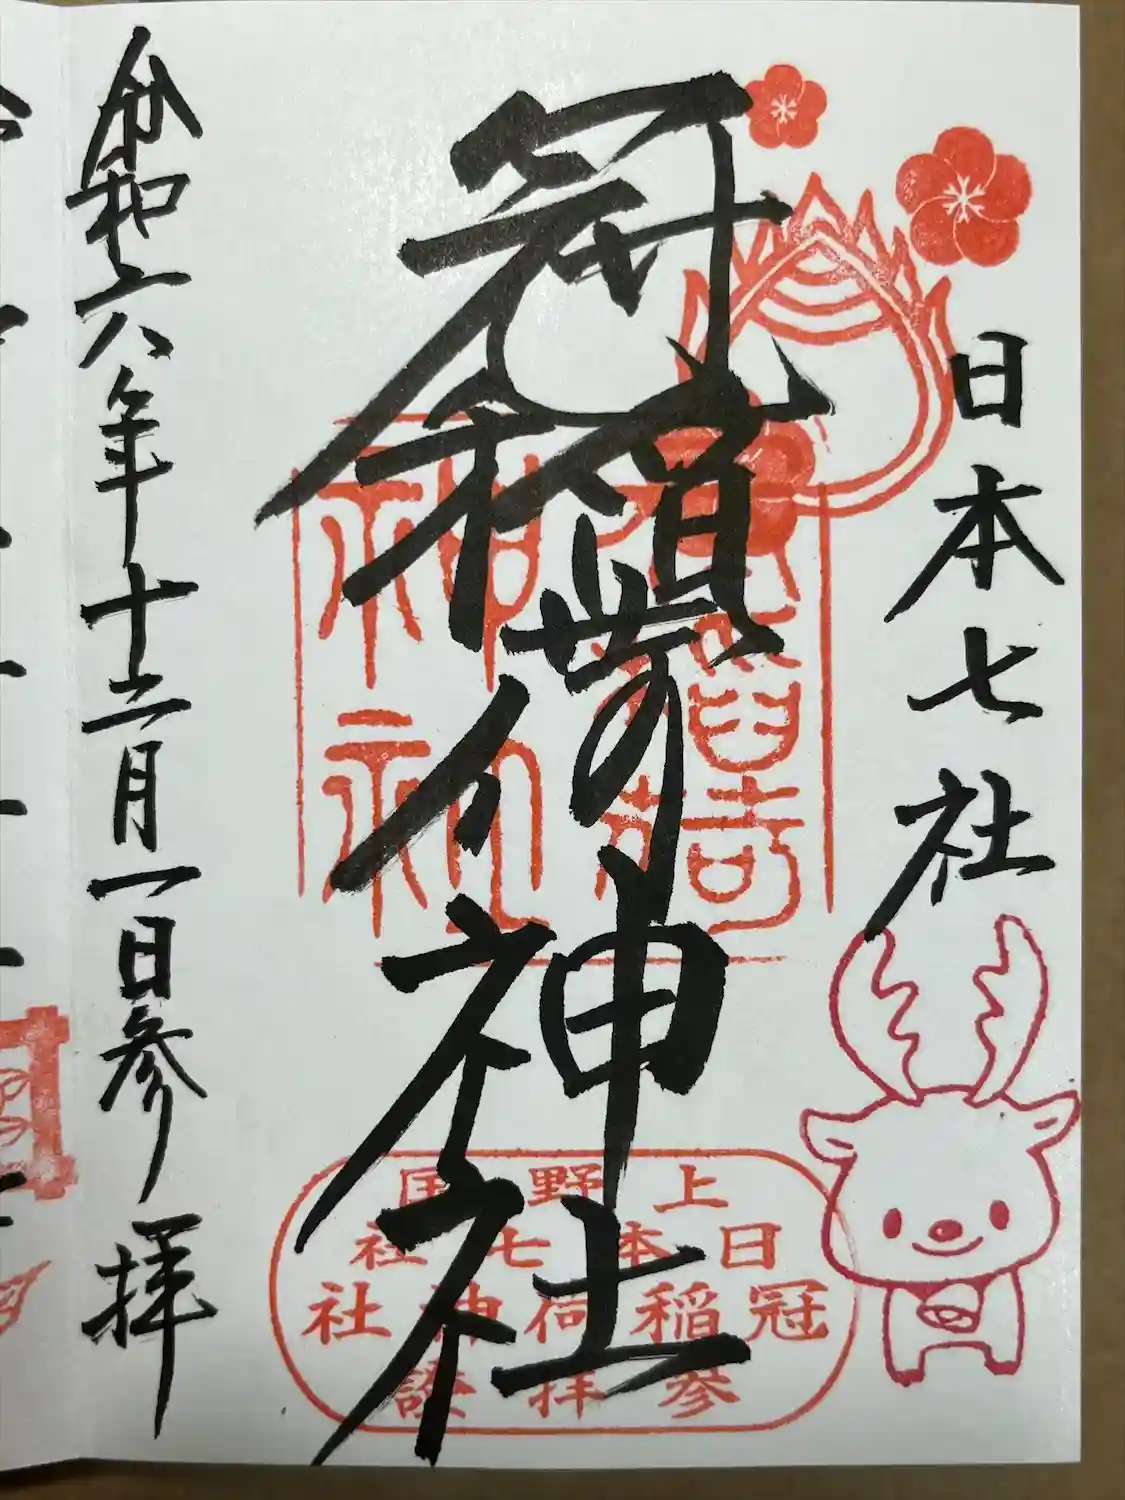 日本七社
冠稲荷神社
令和六年十二月一日参拝
上野国
日本七社
冠稲荷神社
参拝證